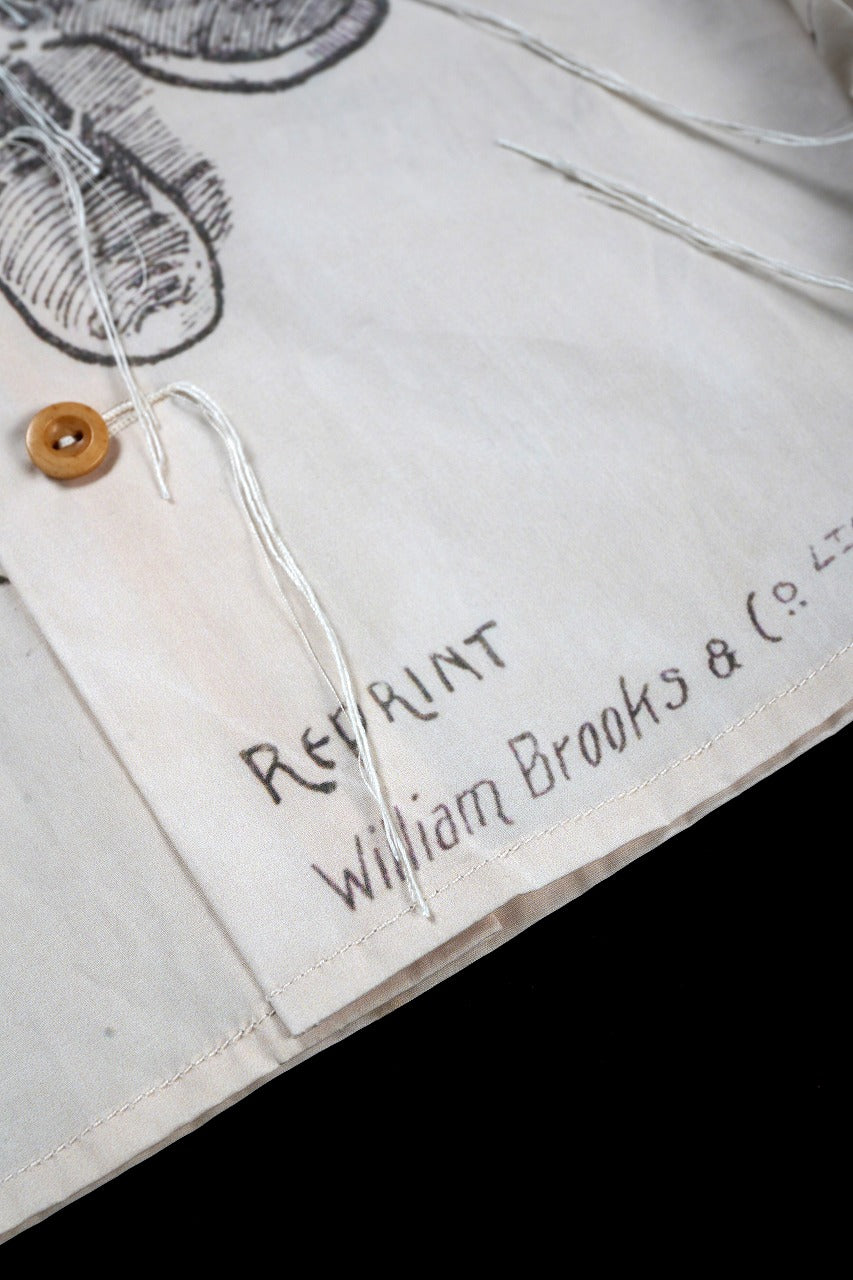 REPRINT
William Brooks & Co.